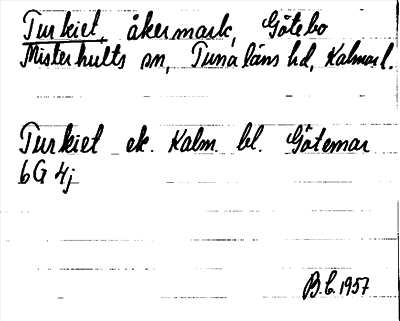 Turkiet, åkermark, Götebo
Misterhults sn, Tuna läns hd, Kalmar l.
Turkiet ek. Kalm. bl. Götemar
6G 4j
B.L. 1957